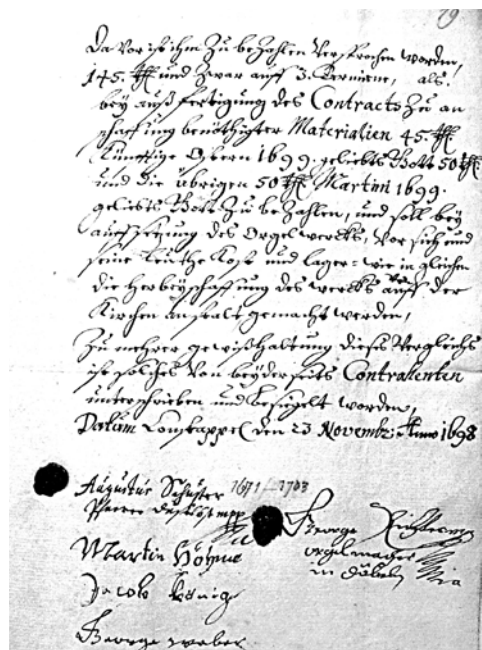 79
Da Vor ist ihm Zu bezahlen Versprochen worden,
145. thl. und Zwar auff 3. Termine, als.
bey außfertigung des Contracts Zu an
schaffung benöthigter Materialien 45. thl.
Künfftige Ostern 1699. geliebts Gott 50 thl.
und die übrigen 50 thl. Martini 1699.
geliebts Gott Zu bezahlen, und soll bey
auffsezung des Orgelwercks, Vor sich und
seine Leuthe Kost und lager = wie in gleichen
die herbeyschaffung des wercks auff der
Kirchen anstalt gemacht werden,
Zu mehrer gewißhaltung dieses Vergleichs
ist solches Von beyderseits Contrahenten
unterschrieben und besiegelt worden,
Datum Constappel den 23 Novembr: Anno 1698
Augustus Schuster 1671–1703
Pfarrer daselbst mpp
George Richter
orgelmacher
in Döbeln
Martin Höhne
Jacob König
George weber